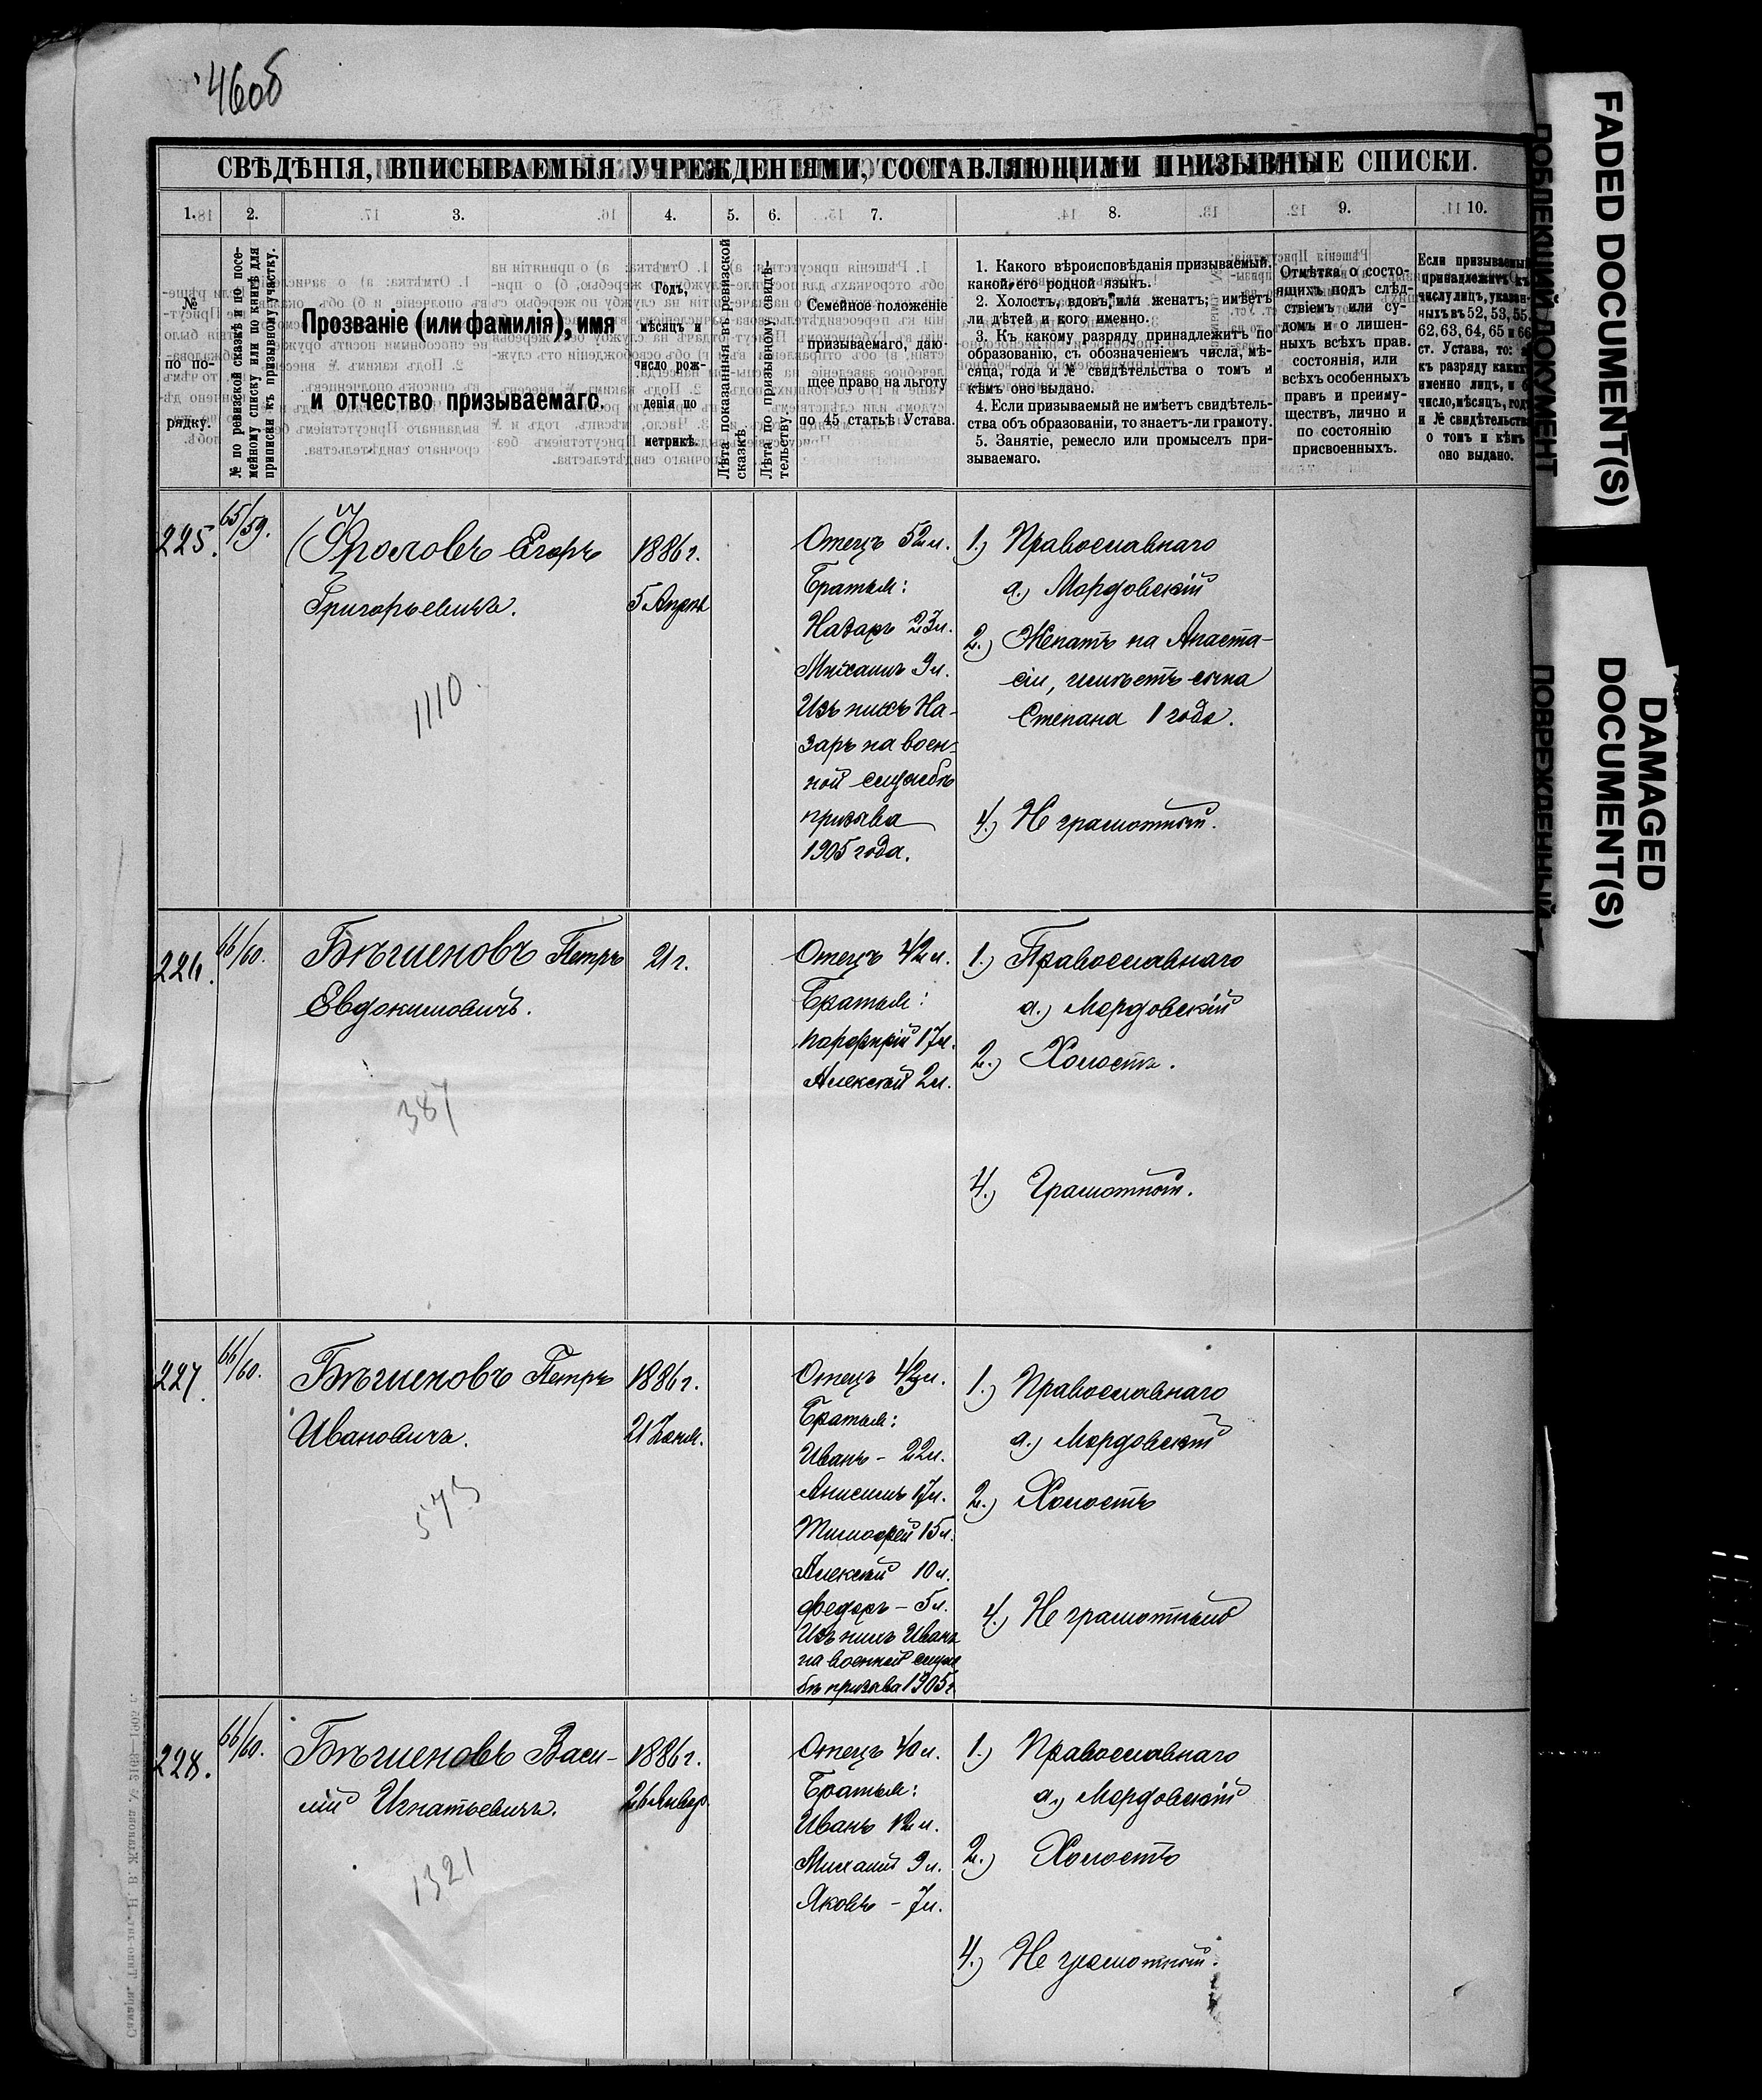 460б
СВѢДѢНІЯ, ВПИСЫВАЕМЫЯ УЧРЕЖДЕНІЯМИ, СОСТАВЛЯЮЩИМИ ПРИЗЫВНЫЕ СПИСКИ.
1. 2. 3. 4. 5. 6. 7. 8. 9. 10.
№
по по-
рядку.
№ по ревизской сказкѣ и по посе-
мейному списку или по книгѣ для
приписки къ призывному участку.
Прозваніе (или фамилія), имя
и отчество призываемаго.
Годъ,
мѣсяцъ и
число рож-
денія по
метрикѣ.
Лѣта показанныя въ ревизской
сказкѣ
Лѣта по призывному свидѣ-
тельству
Семейное положеніе
призываемаго, даю-
щее право на льготу
по 45 статьѣ Устава.
1. Какого вѣроисповѣданія призываемый,
какой его родной языкъ.
2. Холостъ, вдовъ, или женатъ; имѣетъ
ли дѣтей и кого именно.
3. Къ какому разряду принадлежитъ по
образованію, съ обозначеніемъ числа, мѣ-
сяца, года и № свидѣтельства о томъ и
кѣмъ оно выдано.
4. Если призываемый не имѣетъ свидѣтель-
ства объ образованіи, то знаетъ-ли грамоту.
5. Занятіе, ремесло или промыселъ при-
зываемаго.
Отмѣтка о состо-
ящихъ подъ слѣд-
ствіемъ или су-
домъ и о лишен-
ныхъ всѣхъ прав.
состоянія, или
всѣхъ особенныхъ
правъ и преиму-
ществъ, лично и
по состоянію
присвоенныхъ.
Если призываемый
принадлежитъ къ
числу лицъ, указан-
ныхъ въ 52, 53, 55,
62, 63, 64, 65 и 66
ст. Устава, то: а)
къ разряду какихъ
именно лицъ, и б)
число, мѣсяцъ, годъ
и № свидѣтельства
о томъ и кѣмъ
оно выдано.
225.
65/59.
Фроловъ Егоръ
Григорьевичъ.
1110.
1886 г.
5 Апрѣл
Отецъ 52 л.
Братья:
Назаръ 23 л.
Михаилъ 9 л.
Изъ нихъ На-
заръ на воен-
ной службѣ
призыва
1905 года.
1.) Православнаго
а.) Мордовскій
2.) Женатъ на Анаста-
сіи, имѣетъ сына
Степана 1 года.
4.) Не грамотный.
226.
66/60.
Бѣгшеновъ Петръ
Евдокимовичъ.
387
21 г.
Отецъ 42 л.
Братья:
Порфирій 17 л.
Алексѣй 2 л.
1.) Православнаго
а.) Мордовскій
2.) Холостъ.
4.) Грамотный.
227.
66/60.
Бѣгшеновъ Петръ
Ивановичъ.
573
1886 г.
Отецъ 43 л.
Братья:
Иванъ - 22 л.
Анисимъ 17 л.
Тимофей 15 л.
Алексѣй 10 л.
Федоръ - 5 л.
Изъ нихъ Иванъ
на военной служ
бѣ призыва 1905 г.
1.) Православнаго
а.) Мордовскій
2.) Холостъ
4.) Не грамотный
228.
66/60.
Бѣгшеновъ Васи-
лій Игнатьевичъ.
1321
1886 г.
26 Январ.
Отецъ 40 л.
Братья:
Иванъ 12 л.
Михаилъ 9 л.
Яковъ - 7 л.
1.) Православнаго
а.) Мордовскій
2.) Холостъ
4.) Не грамотный.
FADED DOCUMENT(S)
ПОБЛЕКШИЙ ДОКУМЕНТ
DAMAGED
DOCUMENT(S)
ПОВРЕЖДЕННЫЙ